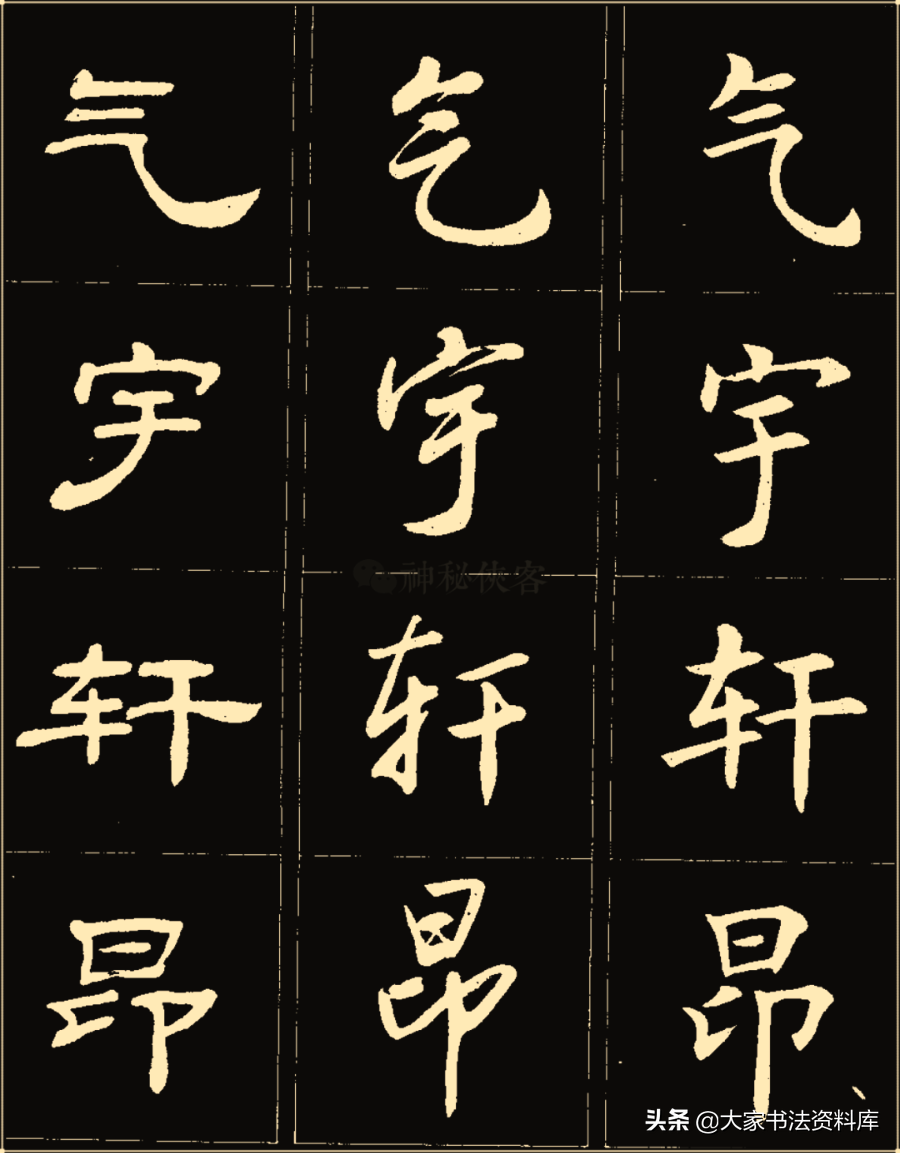 气 气 气
宇 宇 宇
轩 轩 轩
昂 昂 昂
神秘侠客
头条 @大家书法资料库